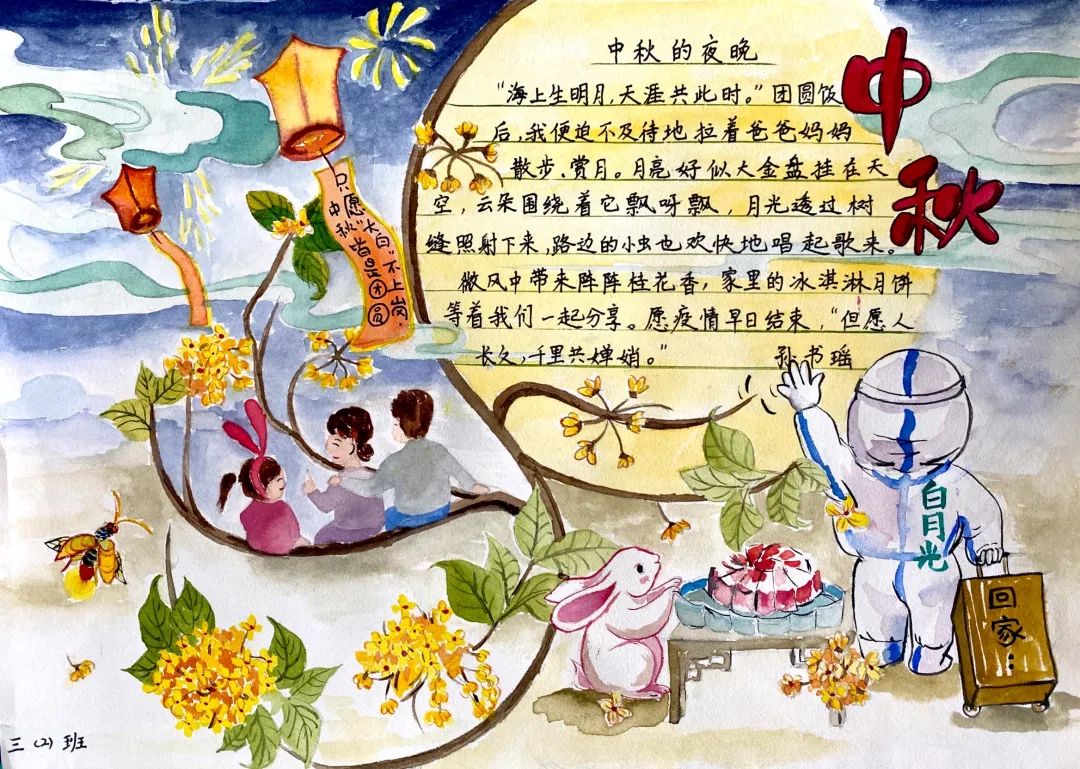 中秋的夜晚
“海上生明月，天涯共此时。”团圆饭
后，我便迫不及待地拉着爸爸妈妈
散步、赏月。月亮好似大金盘挂在天
空，云朵围绕着它飘呀飘，月光透过树
缝照射下来，路边的小虫也欢快地唱起歌来。
微风中带来阵阵桂花香，家里的冰淇淋月饼
等着我们一起分享。愿疫情早日结束，“但愿人
长久，千里共婵娟。”
孙书瑶
中秋
只愿“大白”不上岗，
中秋皆是团圆
白月光
回家...
三（2）班